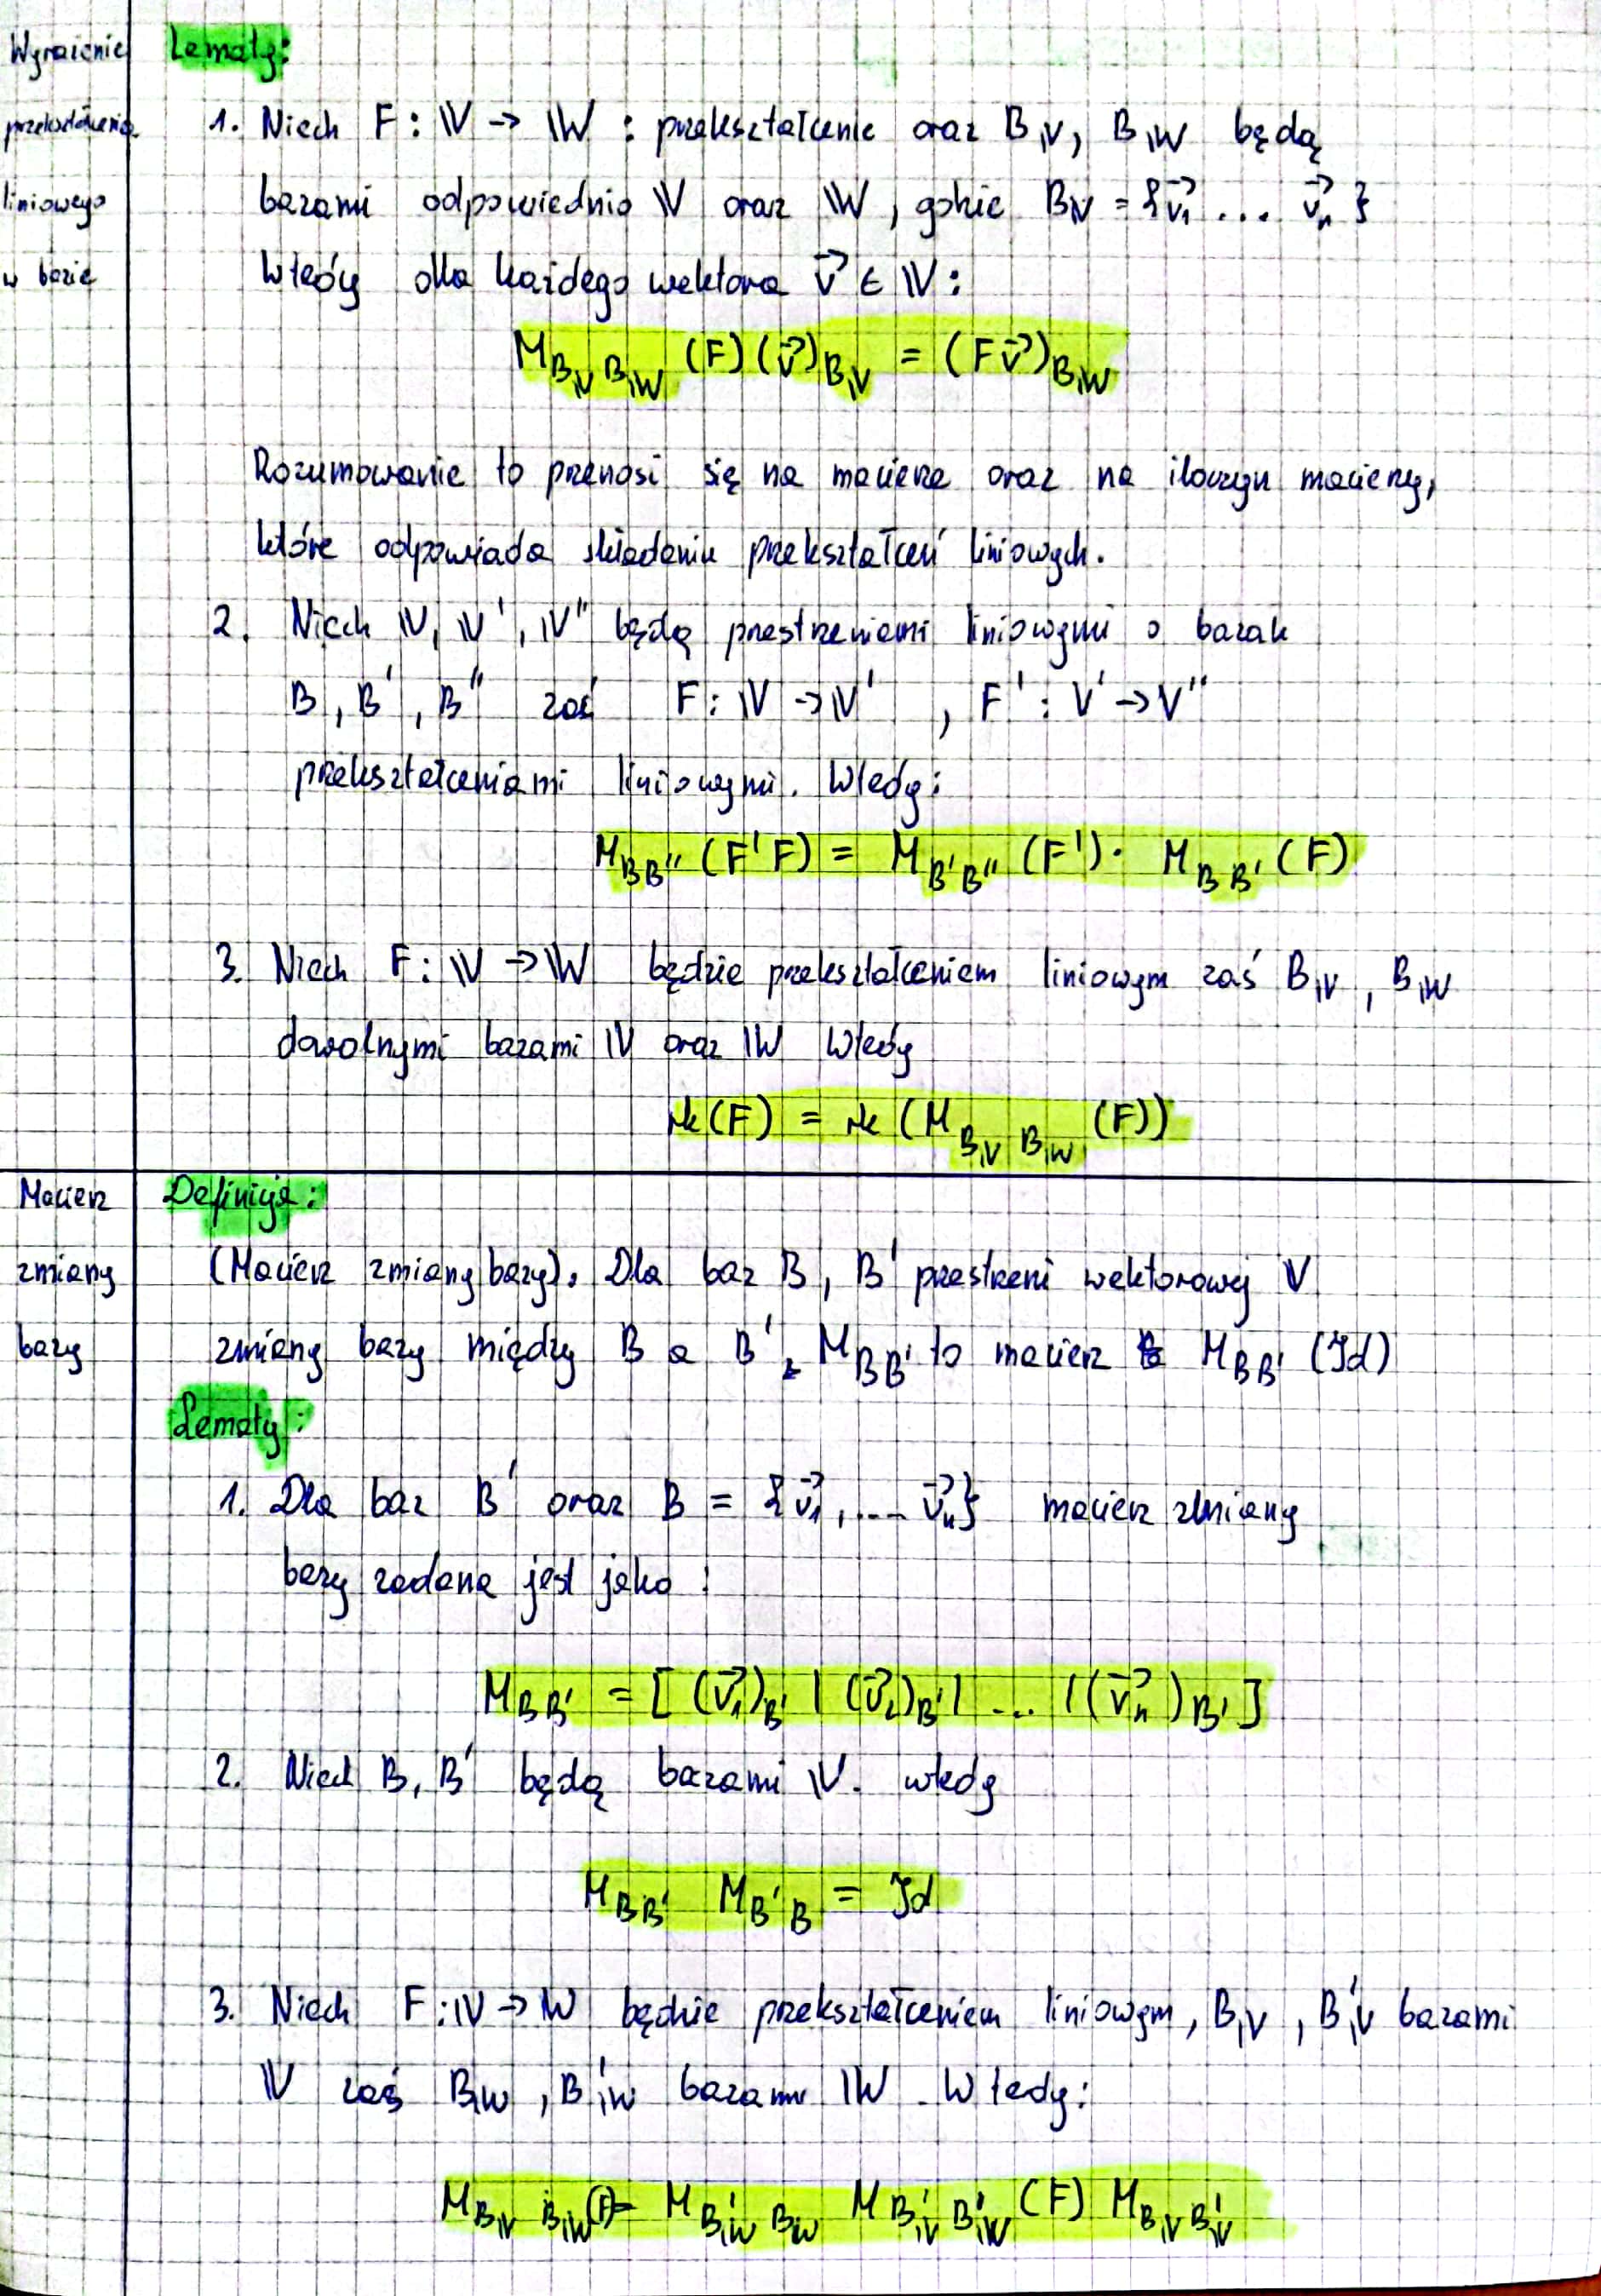 Wyrażenie przekształcenia liniowego w bazie
Lematy:
1. Niech F : V → W : przekształcenie oraz B_V, B_W będą
bazami odpowiednio V oraz W, gdzie B_V = {v⃗₁ ... v⃗ₙ}
Wtedy dla każdego wektora v⃗ ∈ V:
M_{B_V B_W} (F) (v⃗)_{B_V} = (Fv⃗)_{B_W}
Rozumowanie to przenosi się na macierze oraz na iloczyn macierzy,
które odpowiada składaniu przekształceń liniowych.
2. Niech V, V', V'' będą przestrzeniami liniowymi o bazach
B, B', B'' zaś F : V → V' , F' : V' → V''
przekształceniami liniowymi. Wtedy:
M_{BB''} (F'F) = M_{B'B''} (F') · M_{BB'} (F)
3. Niech F : V → W będzie przekształceniem liniowym zaś B_V, B_W
dowolnymi bazami V oraz W Wtedy
rk(F) = rk (M_{B_V B_W} (F))
Macierz zmiany bazy
Definicja:
(Macierz zmiany bazy). Dla baz B, B' przestrzeni wektorowej V
zmiany bazy między B a B', M_{BB'} to macierz M_{BB'} (Id)
Lematy:
1. Dla baz B' oraz B = {v⃗₁, ... v⃗ₙ} macierz zmiany
bazy zadana jest jako:
M_{BB'} = [ (v⃗₁)_{B'} | (v⃗₂)_{B'} | ... | (v⃗ₙ)_{B'} ]
2. Niech B, B' będą bazami V. wtedy
M_{BB'} M_{B'B} = Id
3. Niech F : V → W będzie przekształceniem liniowym, B_V, B'_V bazami
V zaś B_W, B'_W bazami W. Wtedy:
M_{B_V B_W}(F) = M_{B'_W B_W} M_{B'_V B'_W} (F) M_{B_V B'_V}